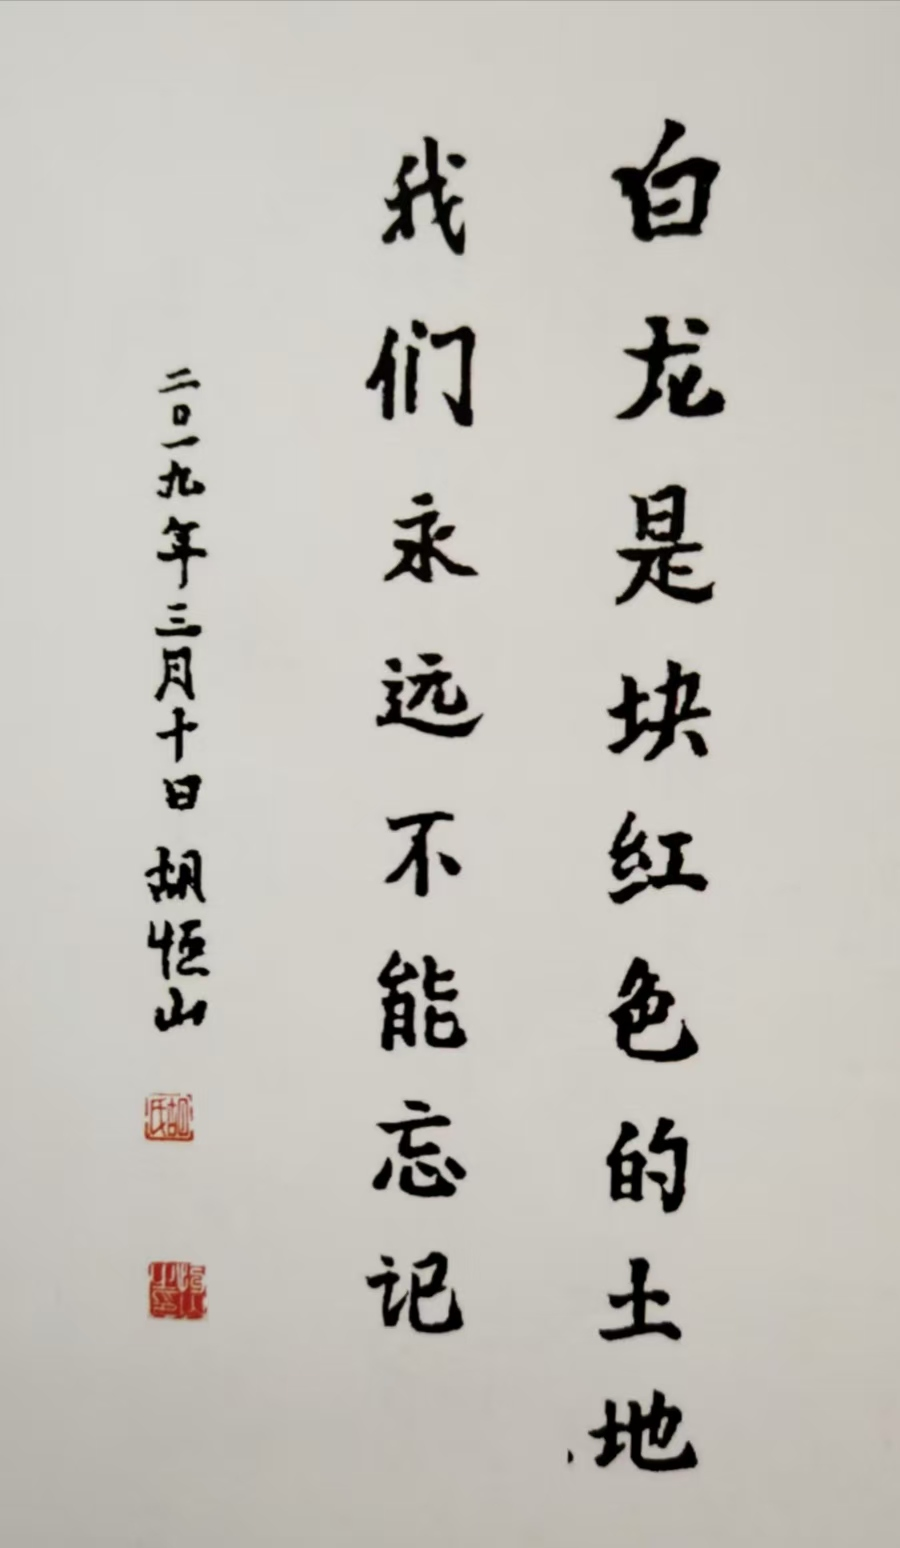 白龙是块红色的土地,
我们永远不能忘记
二〇一九年三月十日 胡恒山
胡氏